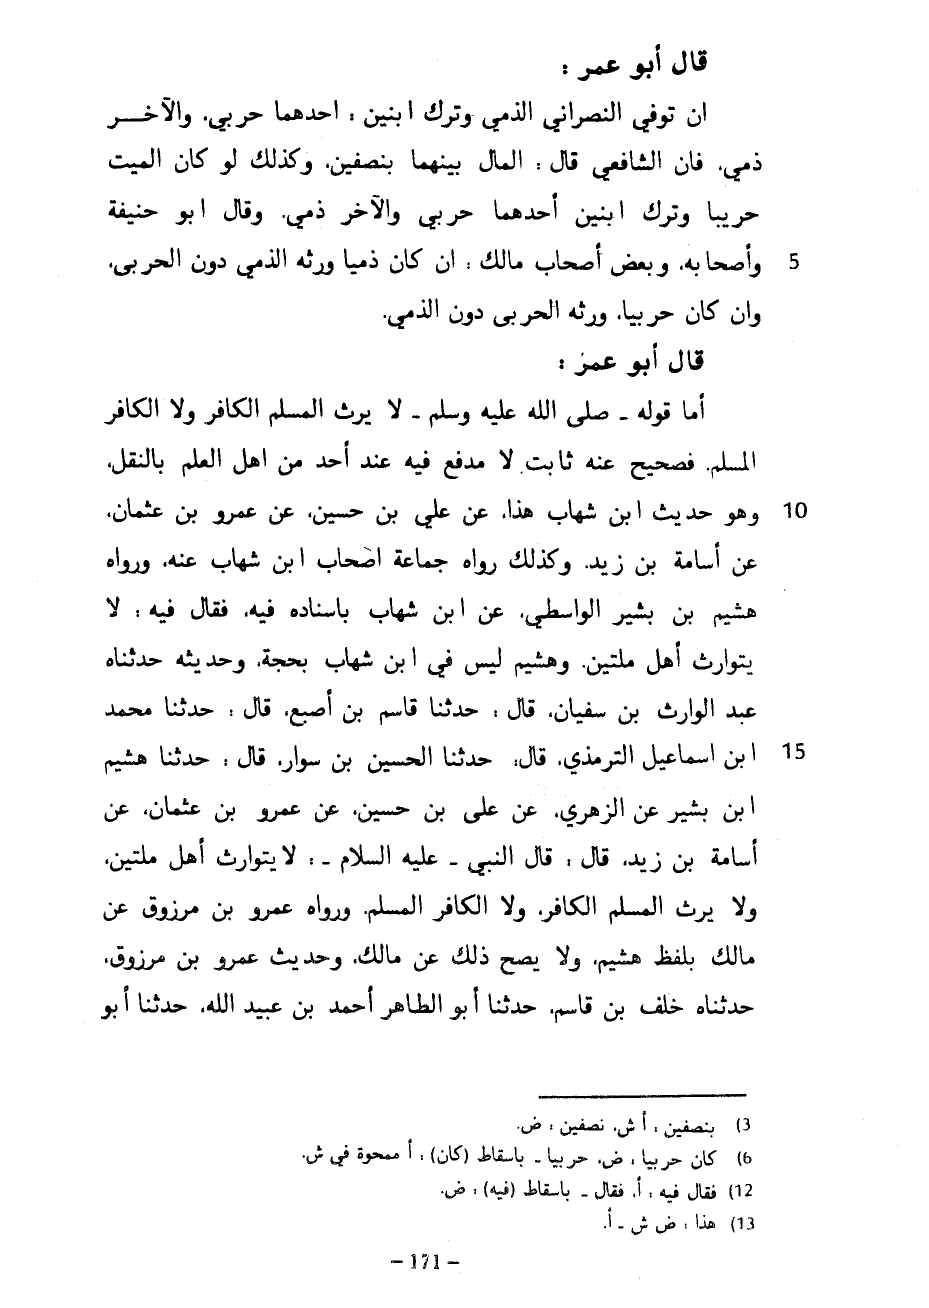 قال أبو عمر :
ان توفي النصراني الذمي وترك ابنين : احدهما حربي، والآخــر
ذمي، فان الشافعي قال : المال بينهما بنصفين، وكذلك لو كان الميت
حربيا وترك ابنين أحدهما حربي والآخر ذمي. وقال ابو حنيفة
5 وأصحابه، وبعض أصحاب مالك : ان كان ذميا ورثه الذمي دون الحربى،
وان كان حربيا، ورثه الحربى دون الذمي.
قال أبو عمر :
أما قوله ـ صلى الله عليه وسلم ـ لا يرث المسلم الكافر ولا الكافر
المسلم. فصحيح عنه ثابت لا مدفع فيه عند أحد من اهل العلم بالنقل،
10 وهو حديث ابن شهاب هذا، عن علي بن حسين، عن عمرو بن عثمان،
عن أسامة بن زيد. وكذلك رواه جماعة اصحاب ابن شهاب عنه، ورواه
هشيم بن بشير الواسطي، عن ابن شهاب باسناده فيه، فقال فيه : لا
يتوارث أهل ملتين. وهشيم ليس في ابن شهاب بحجة، وحديثه حدثناه
عبد الوارث بن سفيان، قال : حدثنا قاسم بن أصبع، قال : حدثنا محمد
15 ابن اسماعيل الترمذي، قال: حدثنا الحسين بن سوار، قال : حدثنا هشيم
ابن بشير عن الزهري، عن على بن حسين، عن عمرو بن عثمان، عن
أسامة بن زيد، قال : قال النبي ـ عليه السلام ـ : لا يتوارث أهل ملتين،
ولا يرث المسلم الكافر، ولا الكافر المسلم. ورواه عمرو بن مرزوق عن
مالك بلفظ هشيم، ولا يصح ذلك عن مالك، وحديث عمرو بن مرزوق،
حدثناه خلف بن قاسم، حدثنا أبو الطاهر أحمد بن عبيد الله، حدثنا أبو
3) بنصفين : أ ش، نصفين : ض.
6) كان حربيا : ض، حربيا ـ باسقاط (كان) : أ ممحوة في ش.
12) فقال فيه : أ، فقال ـ باسقاط (فيه) : ض.
13) هذا : ض ش ـ أ.
– 171 –